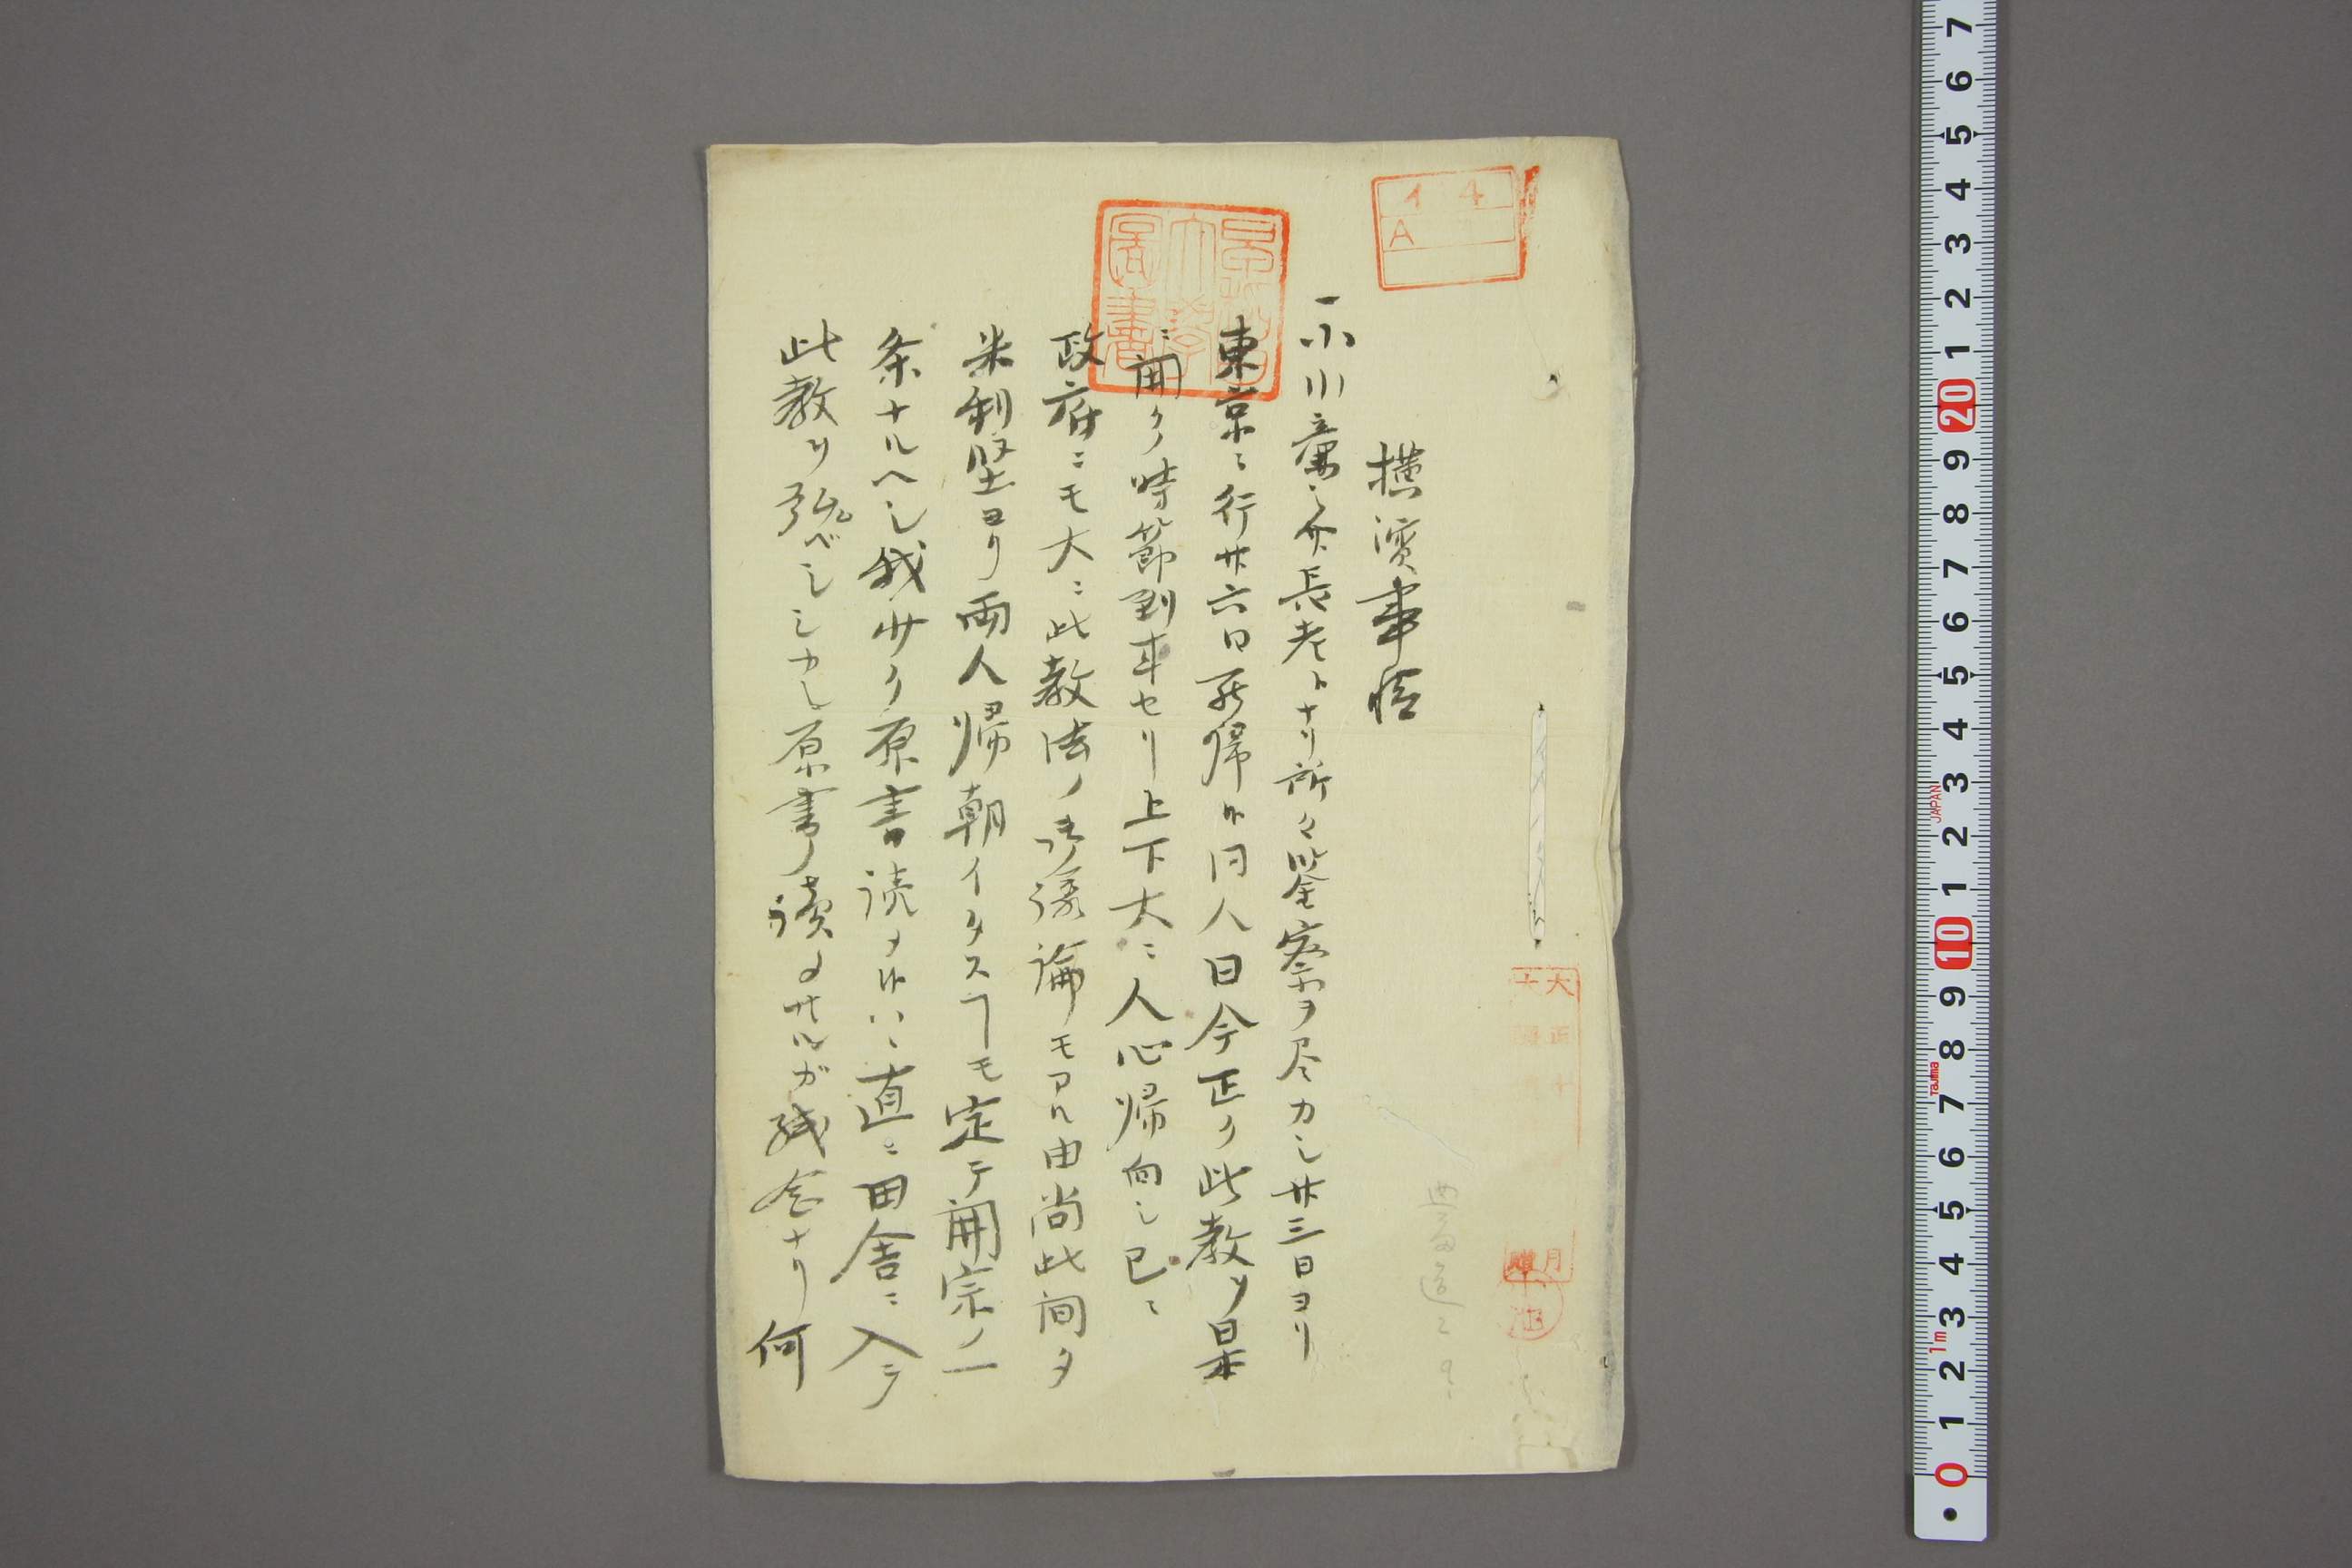 横濱事情
一小川廉之介長老トナリ所々鑒察ヲ尽カシ廿三日ヨリ
東京ニ行廿六日ニ帰ル同人曰今正ク此教ヲ日本
ニ開ク時節到来セリ上下大ニ人心帰向シ已ニ
政府ニモ大ニ此教法ノ御議論モアル由尚此間タ
米利堅ヨリ両人帰朝イタスヿモ定テ開宗ノ一
条ナルヘシ我少ク原書読メルハ直ニ田舎ニ入テ
此教ヲ弘ベシシカし原書ヲ讀ヱサルガ残念ナリ何
イ 4
A
大正十
月